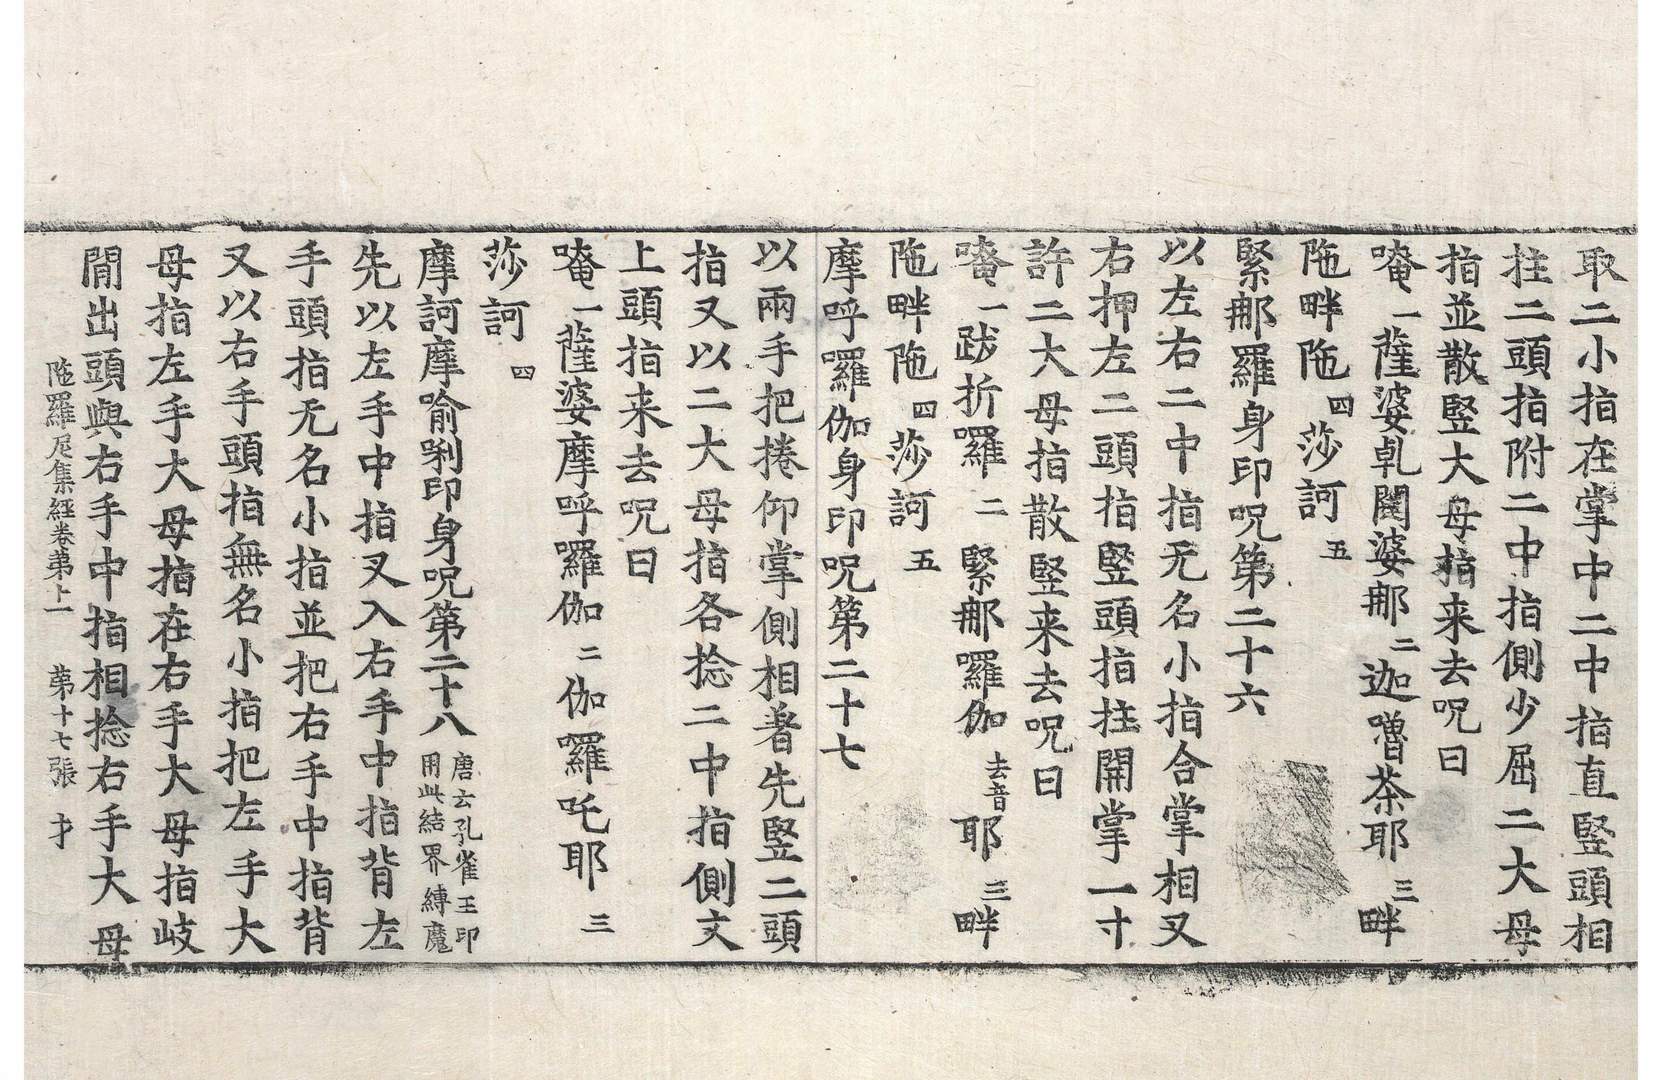 取二小指在掌中二中指直竪頭相
拄二頭指附二中指側少屈二大母
指並散竪大母指来去呪曰
唵一薩婆乹闥婆那二迦嚕茶耶三畔
陁畔陁四莎訶五
緊那羅身印呪第二十六
以左右二中指无名小指合掌相叉
右押左二頭指竪頭指拄開掌一寸
許二大母指散竪来去呪曰
唵一跋折囉二緊那羅伽去音耶三畔
陁畔陁四莎訶五
摩呼囉伽身印呪第二十七
以兩手把捲仰掌側相著先竪二頭
指又以二大母指各捻二中指側文
上頭指来去呪曰
唵一薩婆摩呼囉伽二伽羅吒耶三
莎訶四
摩訶摩喻唎印身呪第二十八唐云孔雀王印用此結界縛魔
先以左手中指叉入右手中指背左
手頭指无名小指並把右手中指背
又以右手頭指無名小指把左手大
母指左手大母指在右手大母指岐
閒出頭與右手中指相捻右手大母
陁羅尼集經卷第十一　第十七張　才